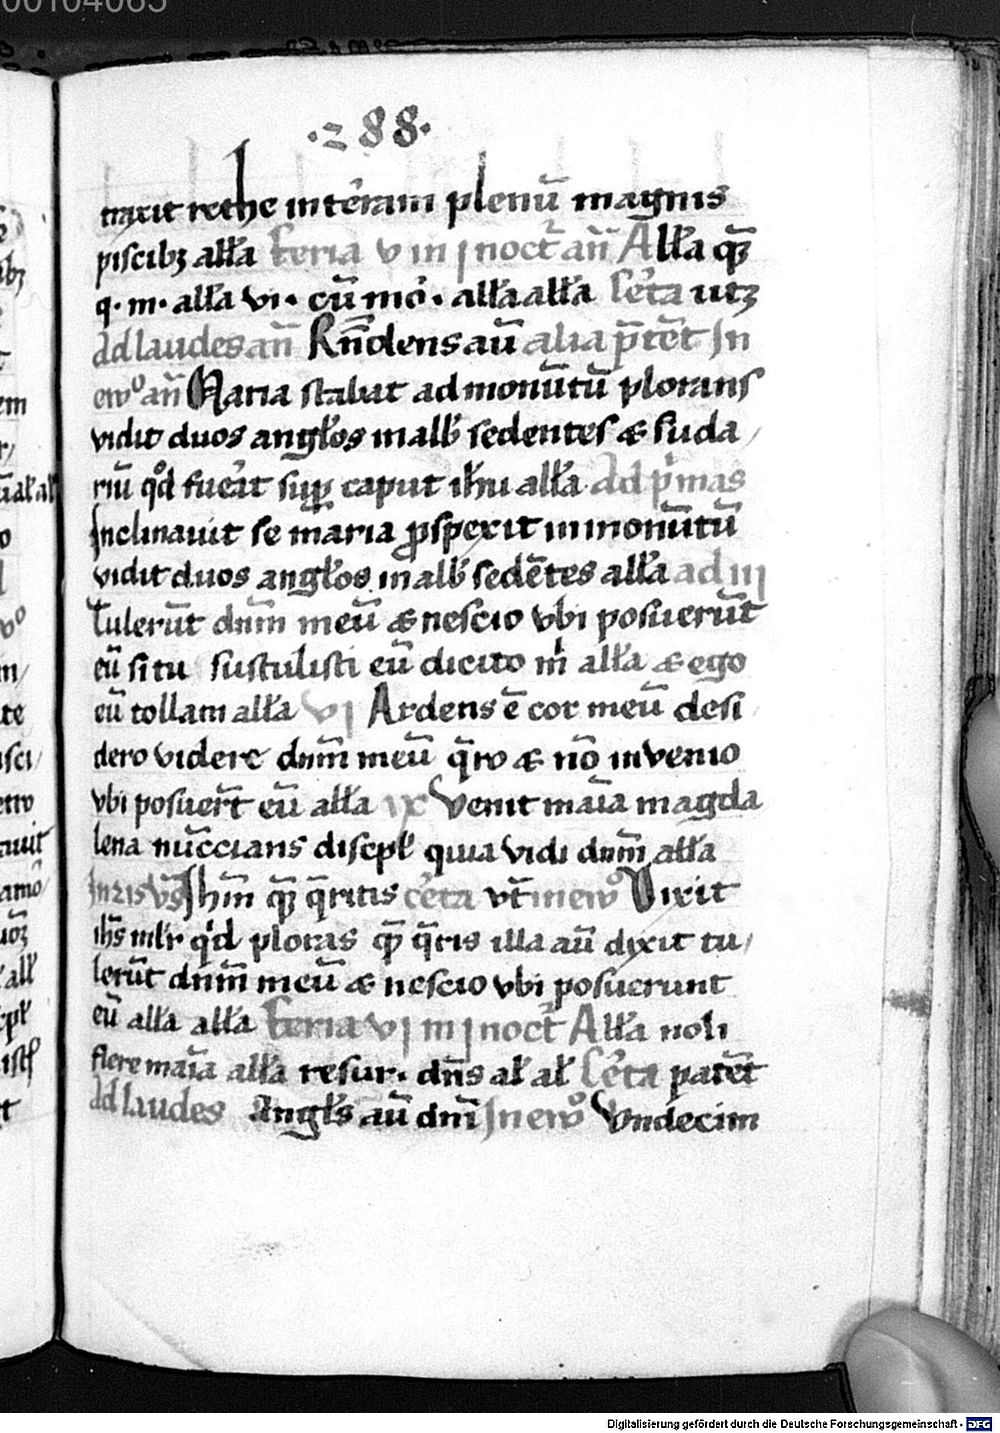 00104065
·288·
traxit rethe in terram plenū magnis
piscibꝫ alła feria v in j noct̄ an̄ Ałła qꝫ
q· m· alła vi· cū mo· alła alła Cet̄a utꝫ
Ad laudes an̄ Rn̄dens aū alia p̄tēt In
ewº an̄ Maria stabat ad monūtū plorans
vidit duos angłos in alb sedentes & suda
riū qd fuerat sup caput ihu alła Ad p'mas
Inclinavit se maria prspexit in monūtū
vidit duos angłos in alb sedētes alła ad iij
Tulerūt dnm̄ meū & nescio vbi posuerūt
eū si tu sustulisti eū dicito m alła & ego
eū tollam alła vj Ardens ē cor meū desi
dero videre dnm̄ meū q̄ro & nō invenio
vbi posuert̄ eū alła ix Venit maīa magda
lena nūccians discpł quia vidi dnm̄ alła
vs̄ Ihm̄ qꝫ q̄ritis cet̄a vt̄ in ewº Dixit
ihs̄ mlr qd ploras qꝫ q̄ris illa aū dixit tu
lerūt dnm̄ meū & nescio vbi posuerunt
eū alła alła feria vj in j noct̄ Ałła noli
flere maīa alła resur· dn̄s ał ał Cet̄a patēt
Ad laudes Angłs aū dnī In ewº Vndecim
Digitalisierung gefördert durch die Deutsche Forschungsgemeinschaft - DFG